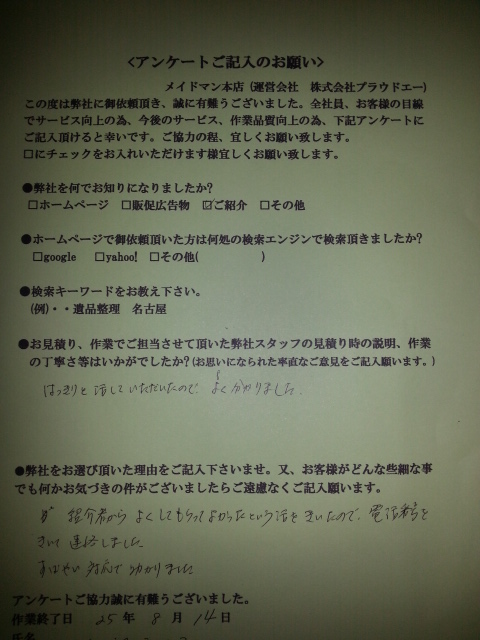 <アンケートご記入のお願い>
メイドマン本店 (運営会社 株式会社プラウドエー)
この度は弊社に御依頼頂き、誠に有難うございました。全社員、お客様の目線
でサービス向上の為、今後のサービス、作業品質向上の為、下記アンケートに
ご記入頂けると幸いです。ご協力の程、宜しくお願い致します。
□にチェックをお入れいただけます様宜しくお願い致します。
●弊社を何でお知りになりましたか?
□ホームページ □販促広告物 ☑ご紹介 □その他
●ホームページで御依頼頂いた方は何処の検索エンジンで検索頂きましたか?
□google □yahoo! □その他( )
●検索キーワードをお教え下さい。
(例)・・遺品整理 名古屋
●お見積り、作業でご担当させて頂いた弊社スタッフの見積り時の説明、作業
の丁寧さ等はいかがでしたか?(お思いになられた率直なご意見をご記入願います。)
はっきりと話していただいたので、よく分かりました。
●弊社をお選び頂いた理由をご記入下さいませ。又、お客様がどんな些細な事
でも何かお気づきの件がございましたらご遠慮なくご記入願います。
紹介者から よくしてもらってよかったという話をきいたので、電話番号を
きいて連絡しました
すばやい対応で助かりました
アンケートご協力誠に有難うございました。
作業終了日 25年 8月 14日